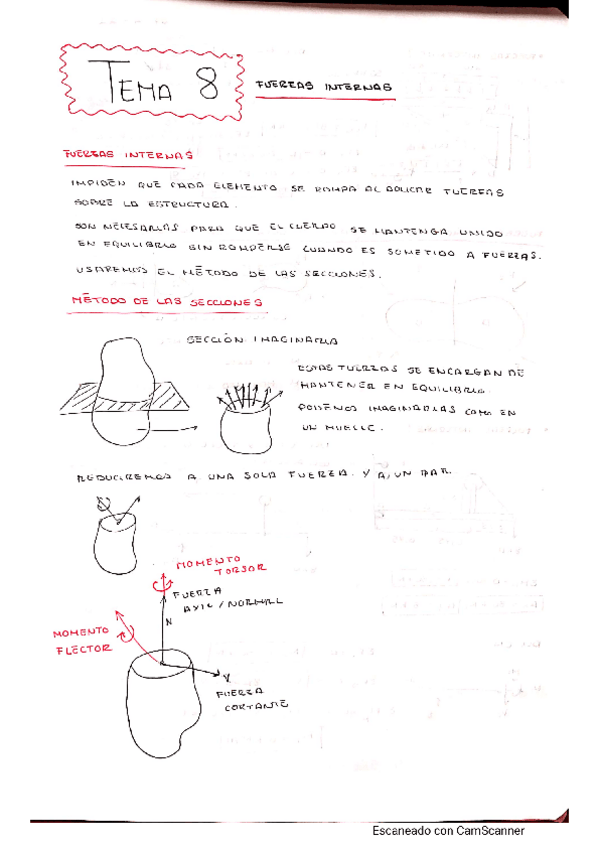 TEMA 8
FUERZAS INTERNAS
FUERZAS INTERNAS
IMPIDEN QUE CADA ELEMENTO SE ROMPA AL APLICAR FUERZAS
SOBRE LA ESTRUCTURA.
SON NECESARIAS PARA QUE EL CUERPO SE MANTENGA UNIDO
EN EQUILIBRIO SIN ROMPERSE CUANDO ES SOMETIDO A FUERZAS.
USAREMOS EL MÉTODO DE LAS SECCIONES.
MÉTODO DE LAS SECCIONES
SECCIÓN IMAGINARIA
ESTAS FUERZAS SE ENCARGAN DE
MANTENER EN EQUILIBRIO.
PODEMOS IMAGINARLAS COMO EN
UN MUELLE.
REDUCIREMOS A UNA SOLA FUERZA Y A UN PAR.
MOMENTO
TORSOR
FUERZA
AXIL/NORMAL
N
MOMENTO
FLECTOR
V
FUERZA
CORTANTE
Escaneado con CamScanner